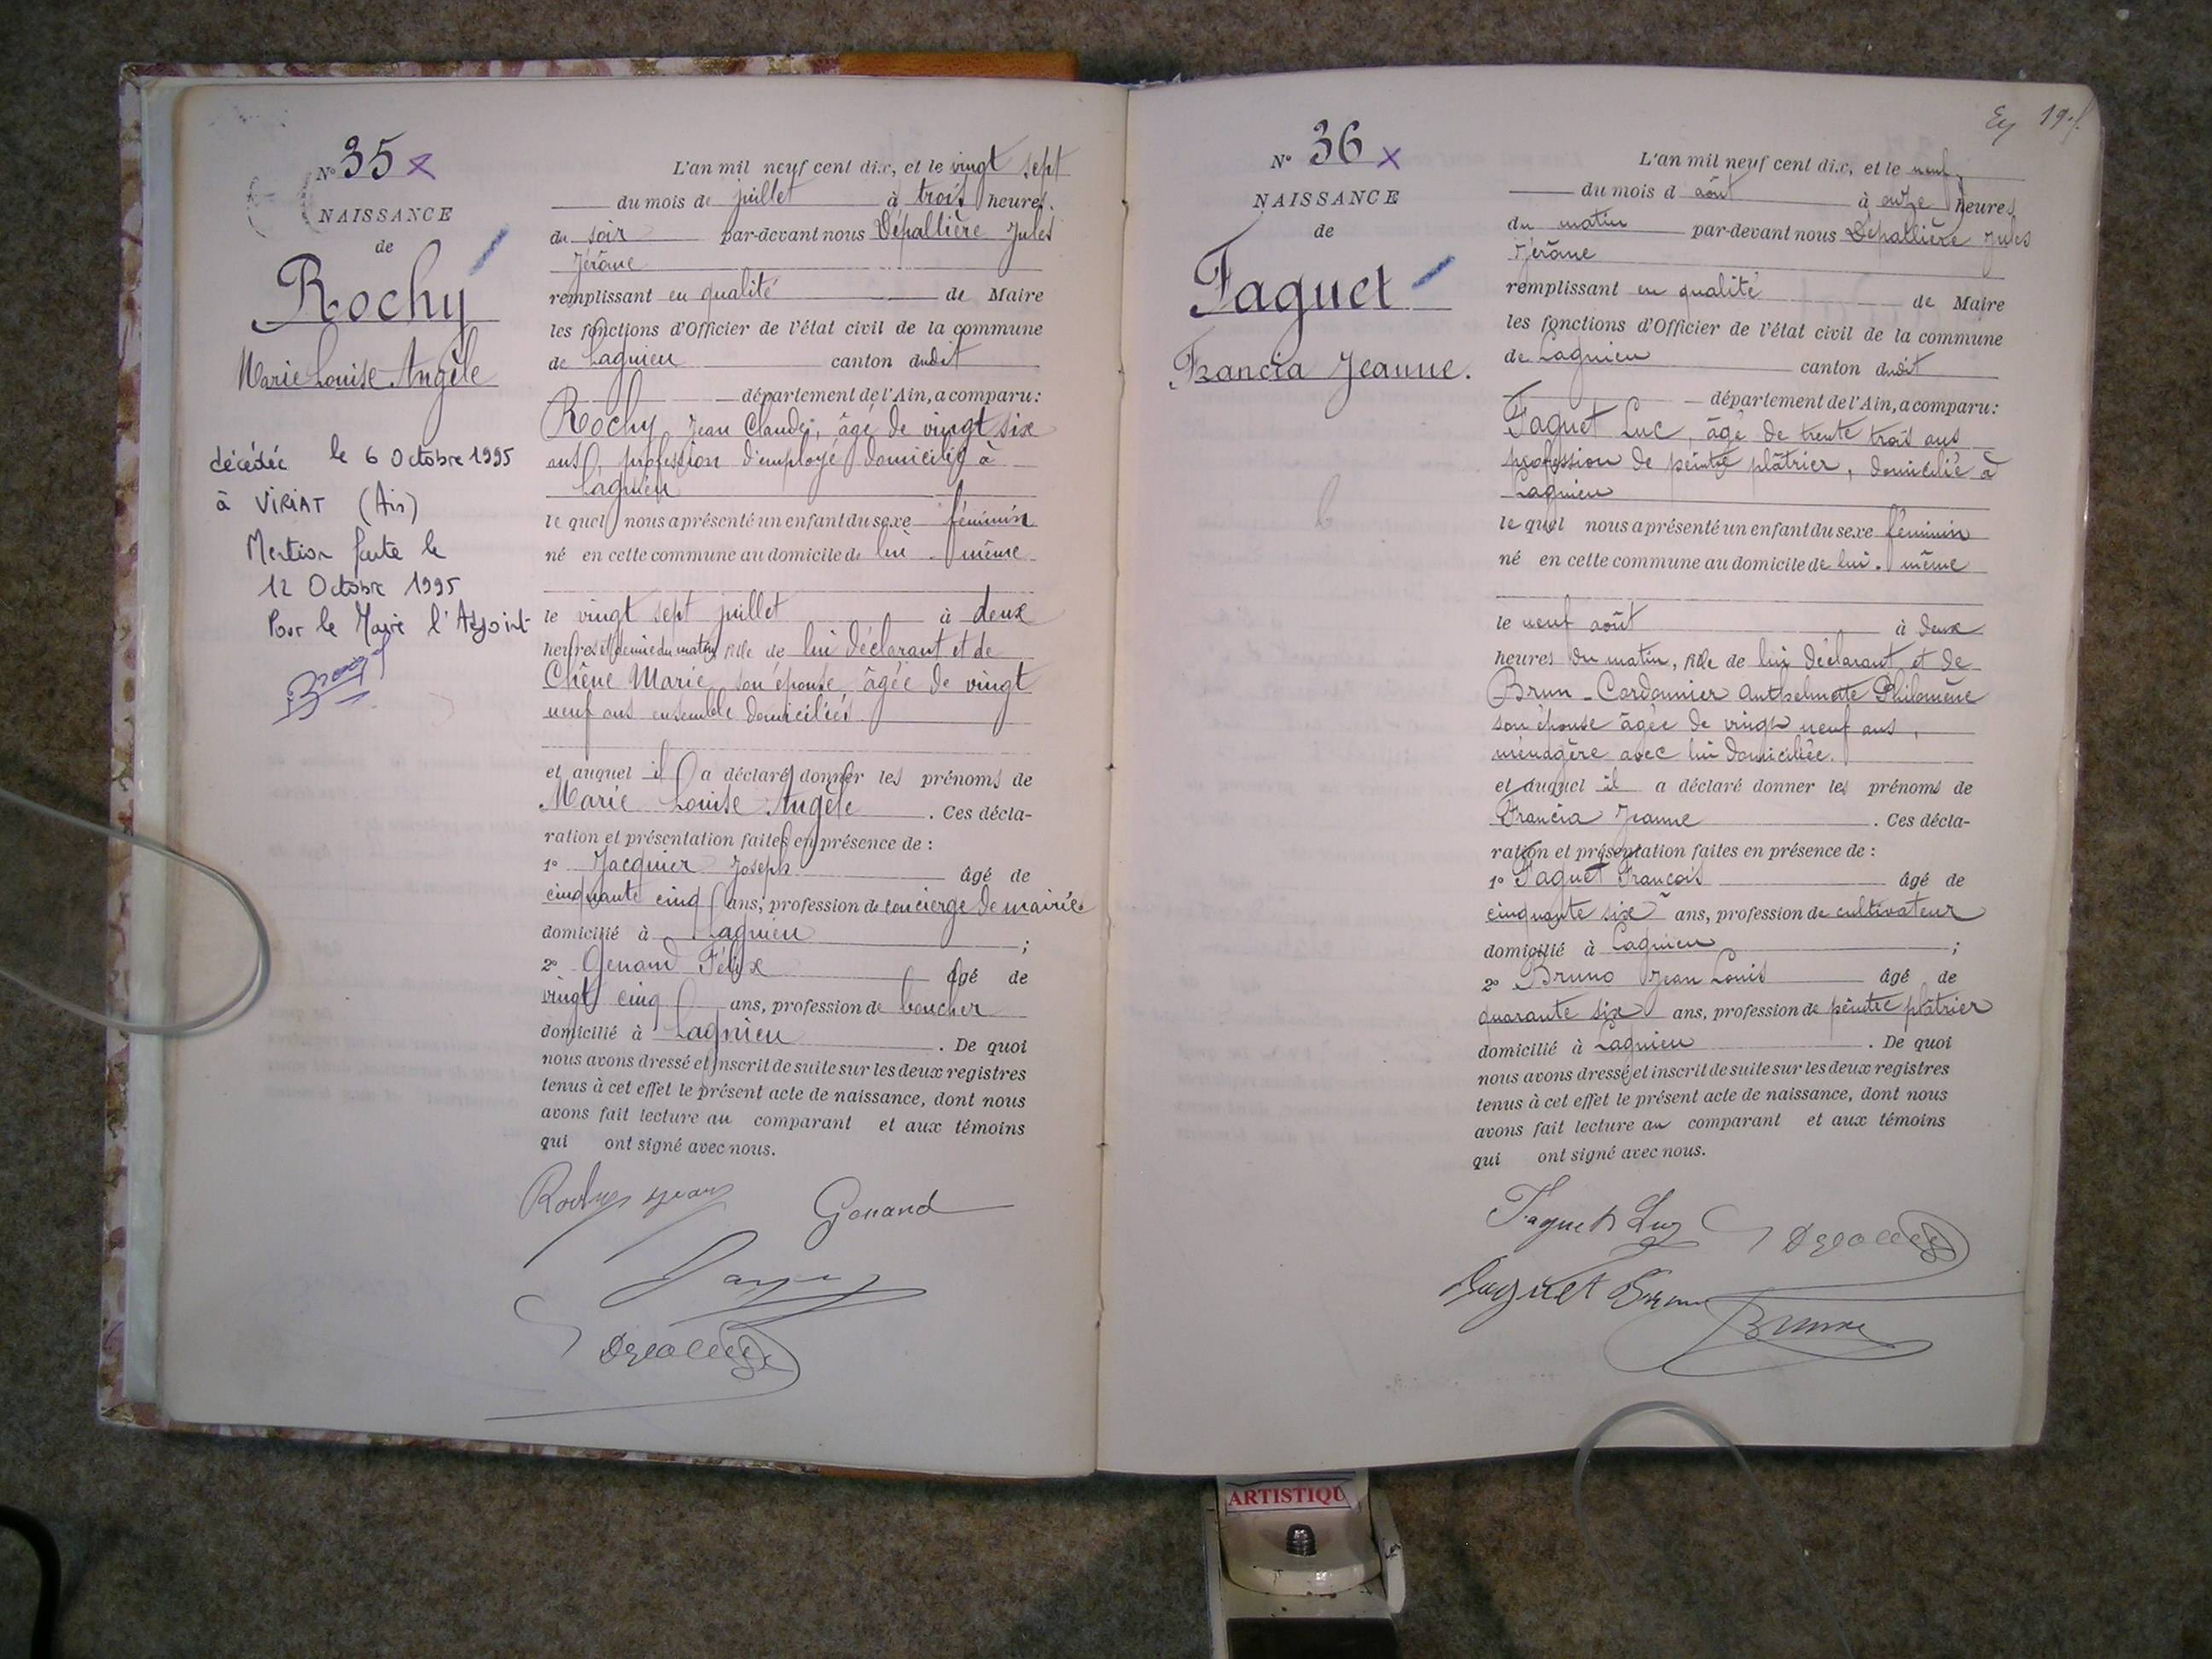 N° 35 x
NAISSANCE
de
Rochy
Marie Louise Angèle
décédée le 6 Octobre 1995
à VIRIAT (Ain)
Mention faite le
12 Octobre 1995
Pour le Maire l'Adjoint
L'an mil neuf cent dix, et le vingt sept
du mois de juillet à trois heures
du soir par-devant nous Dépallière Jules
Jérôme
remplissant en qualité de Maire
les fonctions d'Officier de l'état civil de la commune
de Lagnieu canton dudit
département de l'Ain, a comparu:
Rochy Jean Claude, âgé de vingt six
ans, profession d'employé domicilié à
Lagnieu
le quel nous a présenté un enfant du sexe féminin
né en cette commune au domicile de lui-même
le vingt sept juillet à deux
heures et demie du matin, fille de lui déclarant et de
Chêne Marie, son épouse, âgée de vingt
neuf ans ensemble domiciliés
et auquel il a déclaré donner les prénoms de
Marie Louise Angèle. Ces décla-
ration et présentation faites en présence de :
1° Jacquier Joseph âgé de
cinquante cinq ans, profession de concierge de mairie
domicilié à Lagnieu ;
2° Genand Félix âgé de
vingt cinq ans, profession de boucher
domicilié à Lagnieu. De quoi
nous avons dressé et inscrit de suite sur les deux registres
tenus à cet effet le présent acte de naissance, dont nous
avons fait lecture au comparant et aux témoins
qui ont signé avec nous.
Rochy Jean Genand
Ey 19 f.
N° 36 x
NAISSANCE
de
Faguet
Francia Jeanne.
L'an mil neuf cent dix, et le neuf
du mois d août à onze heures
du matin par-devant nous Dépallière Jules
Jérôme
remplissant en qualité de Maire
les fonctions d'Officier de l'état civil de la commune
de Lagnieu canton dudit
département de l'Ain, a comparu:
Faguet Luc, âgé de trente trois ans
profession de peintre plâtrier, domicilié à
Lagnieu
le quel nous a présenté un enfant du sexe féminin
né en cette commune au domicile de lui-même
le neuf août à deux
heures du matin, fille de lui déclarant et de
Brun-Cordonnier Anthelmette Philomène
son épouse âgée de vingt neuf ans,
ménagère avec lui domiciliée.
et auquel il a déclaré donner les prénoms de
Francia Jeanne. Ces décla-
ration et présentation faites en présence de :
1° Faguet François âgé de
cinquante six ans, profession de cultivateur
domicilié à Lagnieu ;
2° Bruno Jean Louis âgé de
quarante six ans, profession de peintre plâtrier
domicilié à Lagnieu. De quoi
nous avons dressé et inscrit de suite sur les deux registres
tenus à cet effet le présent acte de naissance, dont nous
avons fait lecture au comparant et aux témoins
qui ont signé avec nous.
Faguet Luc
Faguet
Bruno
ARTISTIQU